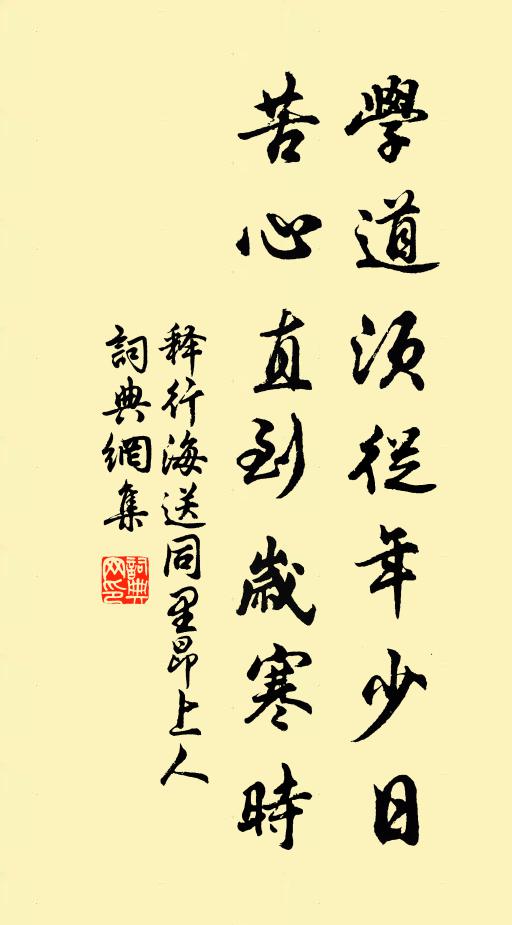 學道須從年少日
苦心直到歲寒時
释行海送同里昂上人
詞典網集
詞典
网印